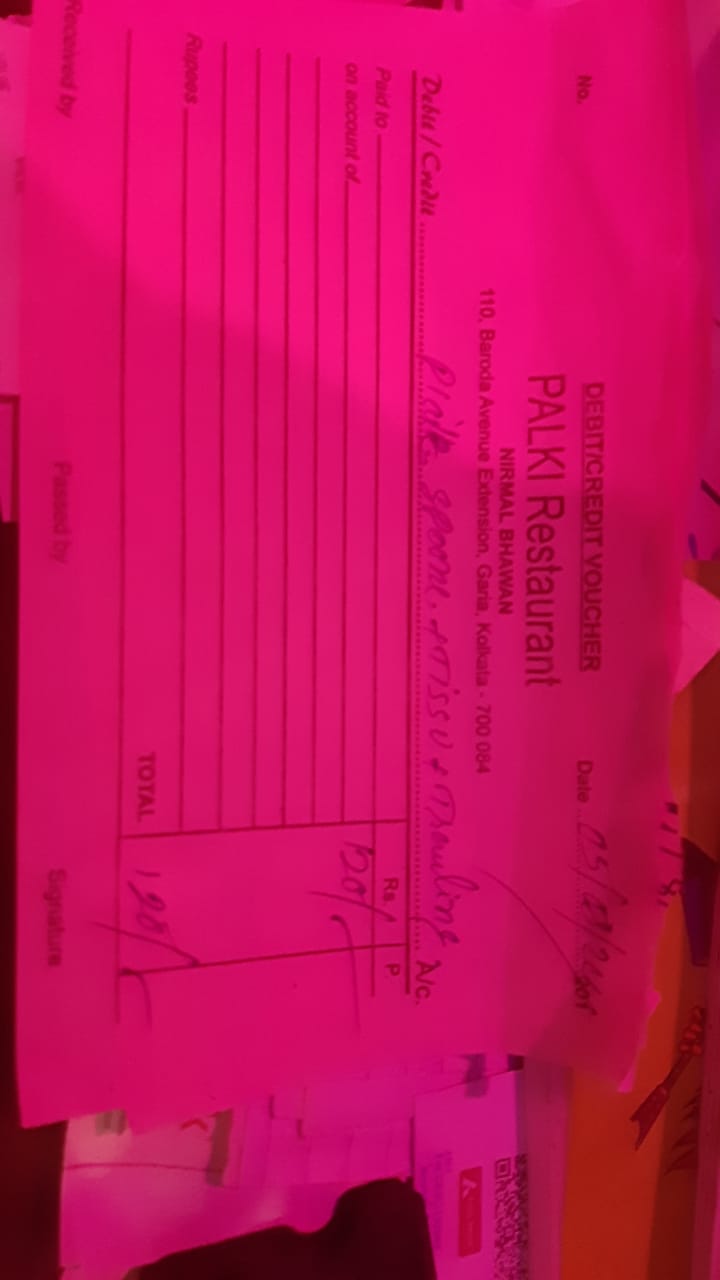 DEBIT/CREDIT VOUCHER
No.
PALKI Restaurant
Date
NIRMAL BHAWAN
110, Baroda Avenue Extension, Garia, Kolkata - 700 084
Debit / Credit Plate, spoone, + Tissu + A/c.
Paid to Rs. P.
on account of 120/-
Rupees
TOTAL 120/-
Received by Passed by Signature